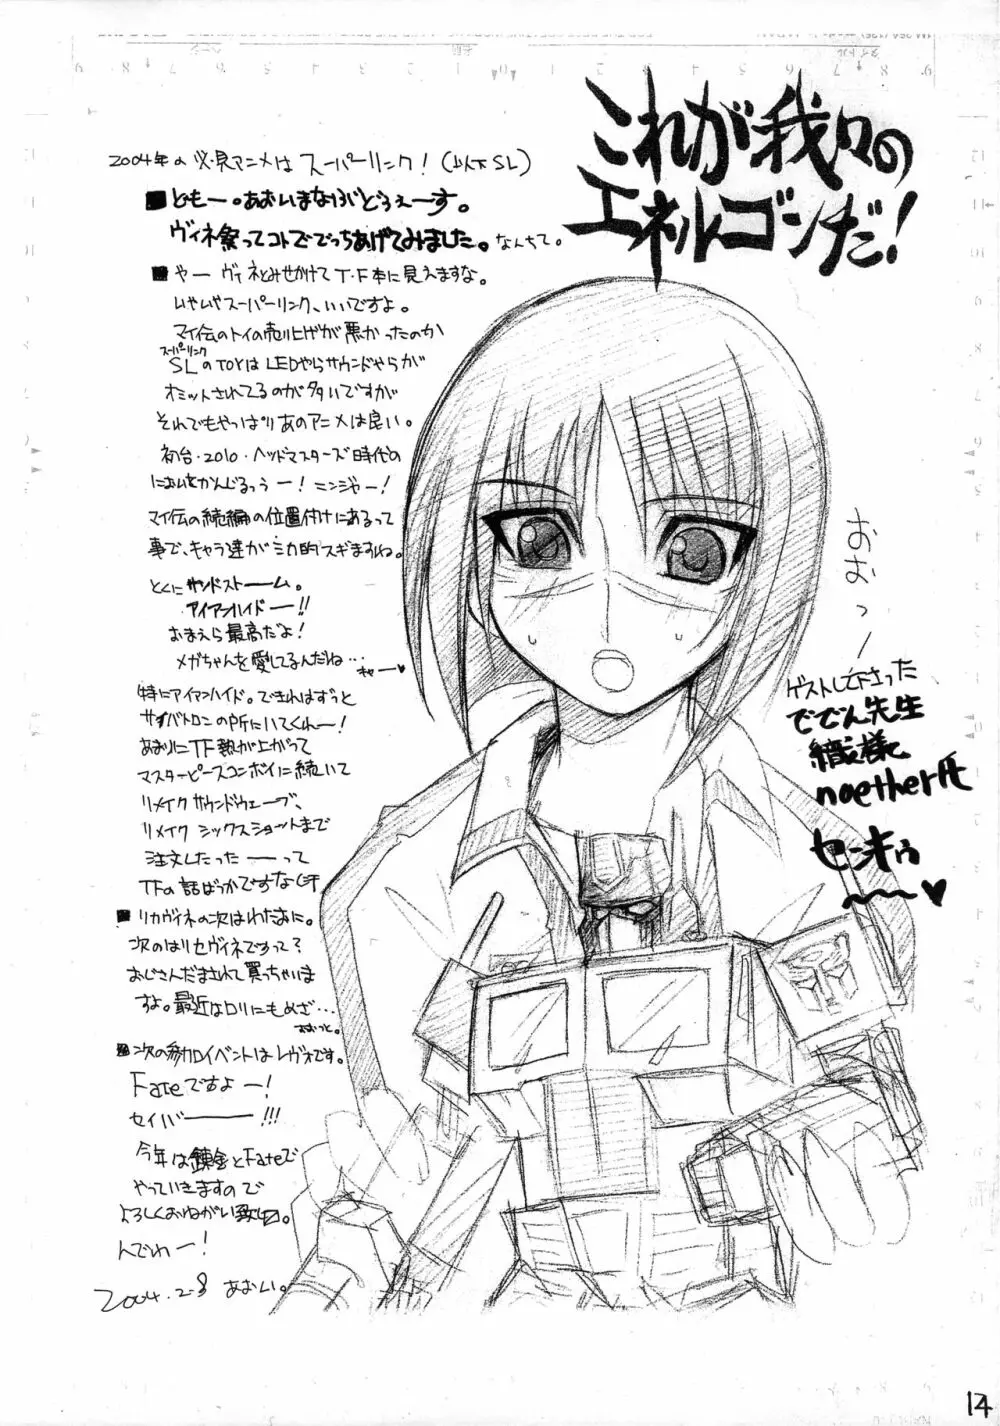 これが我々の
エネルゴンだ!
2004年の必見アニメはスーパーリンク!(以下SL)
■ども一。あおいまなぶどぅぇーす。
ヴィネ祭ってコトででっちあげてみました。なんちて。
■やー ヴィネとみせかけてT・F本に見えますな。
いやいやスーパーリンク、いいですよ。
マイ伝のトイの売り上げが悪かったのか
スーパーリンク
SLのTOYはLEDやらサウンドやらが
オミットされてるのが多いですが
それでもやっぱりあのアニメは良い。
初台・2010・ヘッドマスターズ時代の
においをかんじるっうー!ニンジャー!
マイ伝の続編の位置付けにあるって
事で、キャラ達がミカ的スギますね。
とくにサンドストーム。
アイアンハイドー!!
おまえら最高だよ!
メガちゃんを愛してるんだね…
キャー♥
特にアイアンハイド。できればずっと
サバトロンの所にいてくれー!
あおりにTF熱が上がって
マスターピースコンボイに続いて
リメイクサウンドウェーブ、
リメイク シックスショットまで
注文したったーって
TFの話ばっかですな(汗
■リカヴィネの次はわたおに。
次のはリセヴィネですって?
おじさんだまされて買っちゃいま
すよ。最近はロリにもめざ…
おおっと。
■次の参加イベントはレヴォです。
Fateですよー!
セイバー!!!
今年は錬金とFateで
やっていきますので
よろしくおねがい致し〼。
んでわー!
2004.2.8 あおい。
おおっ
ゲストして下さった
ででん先生
織様
noether氏
センキゥ
〜〜♥
14